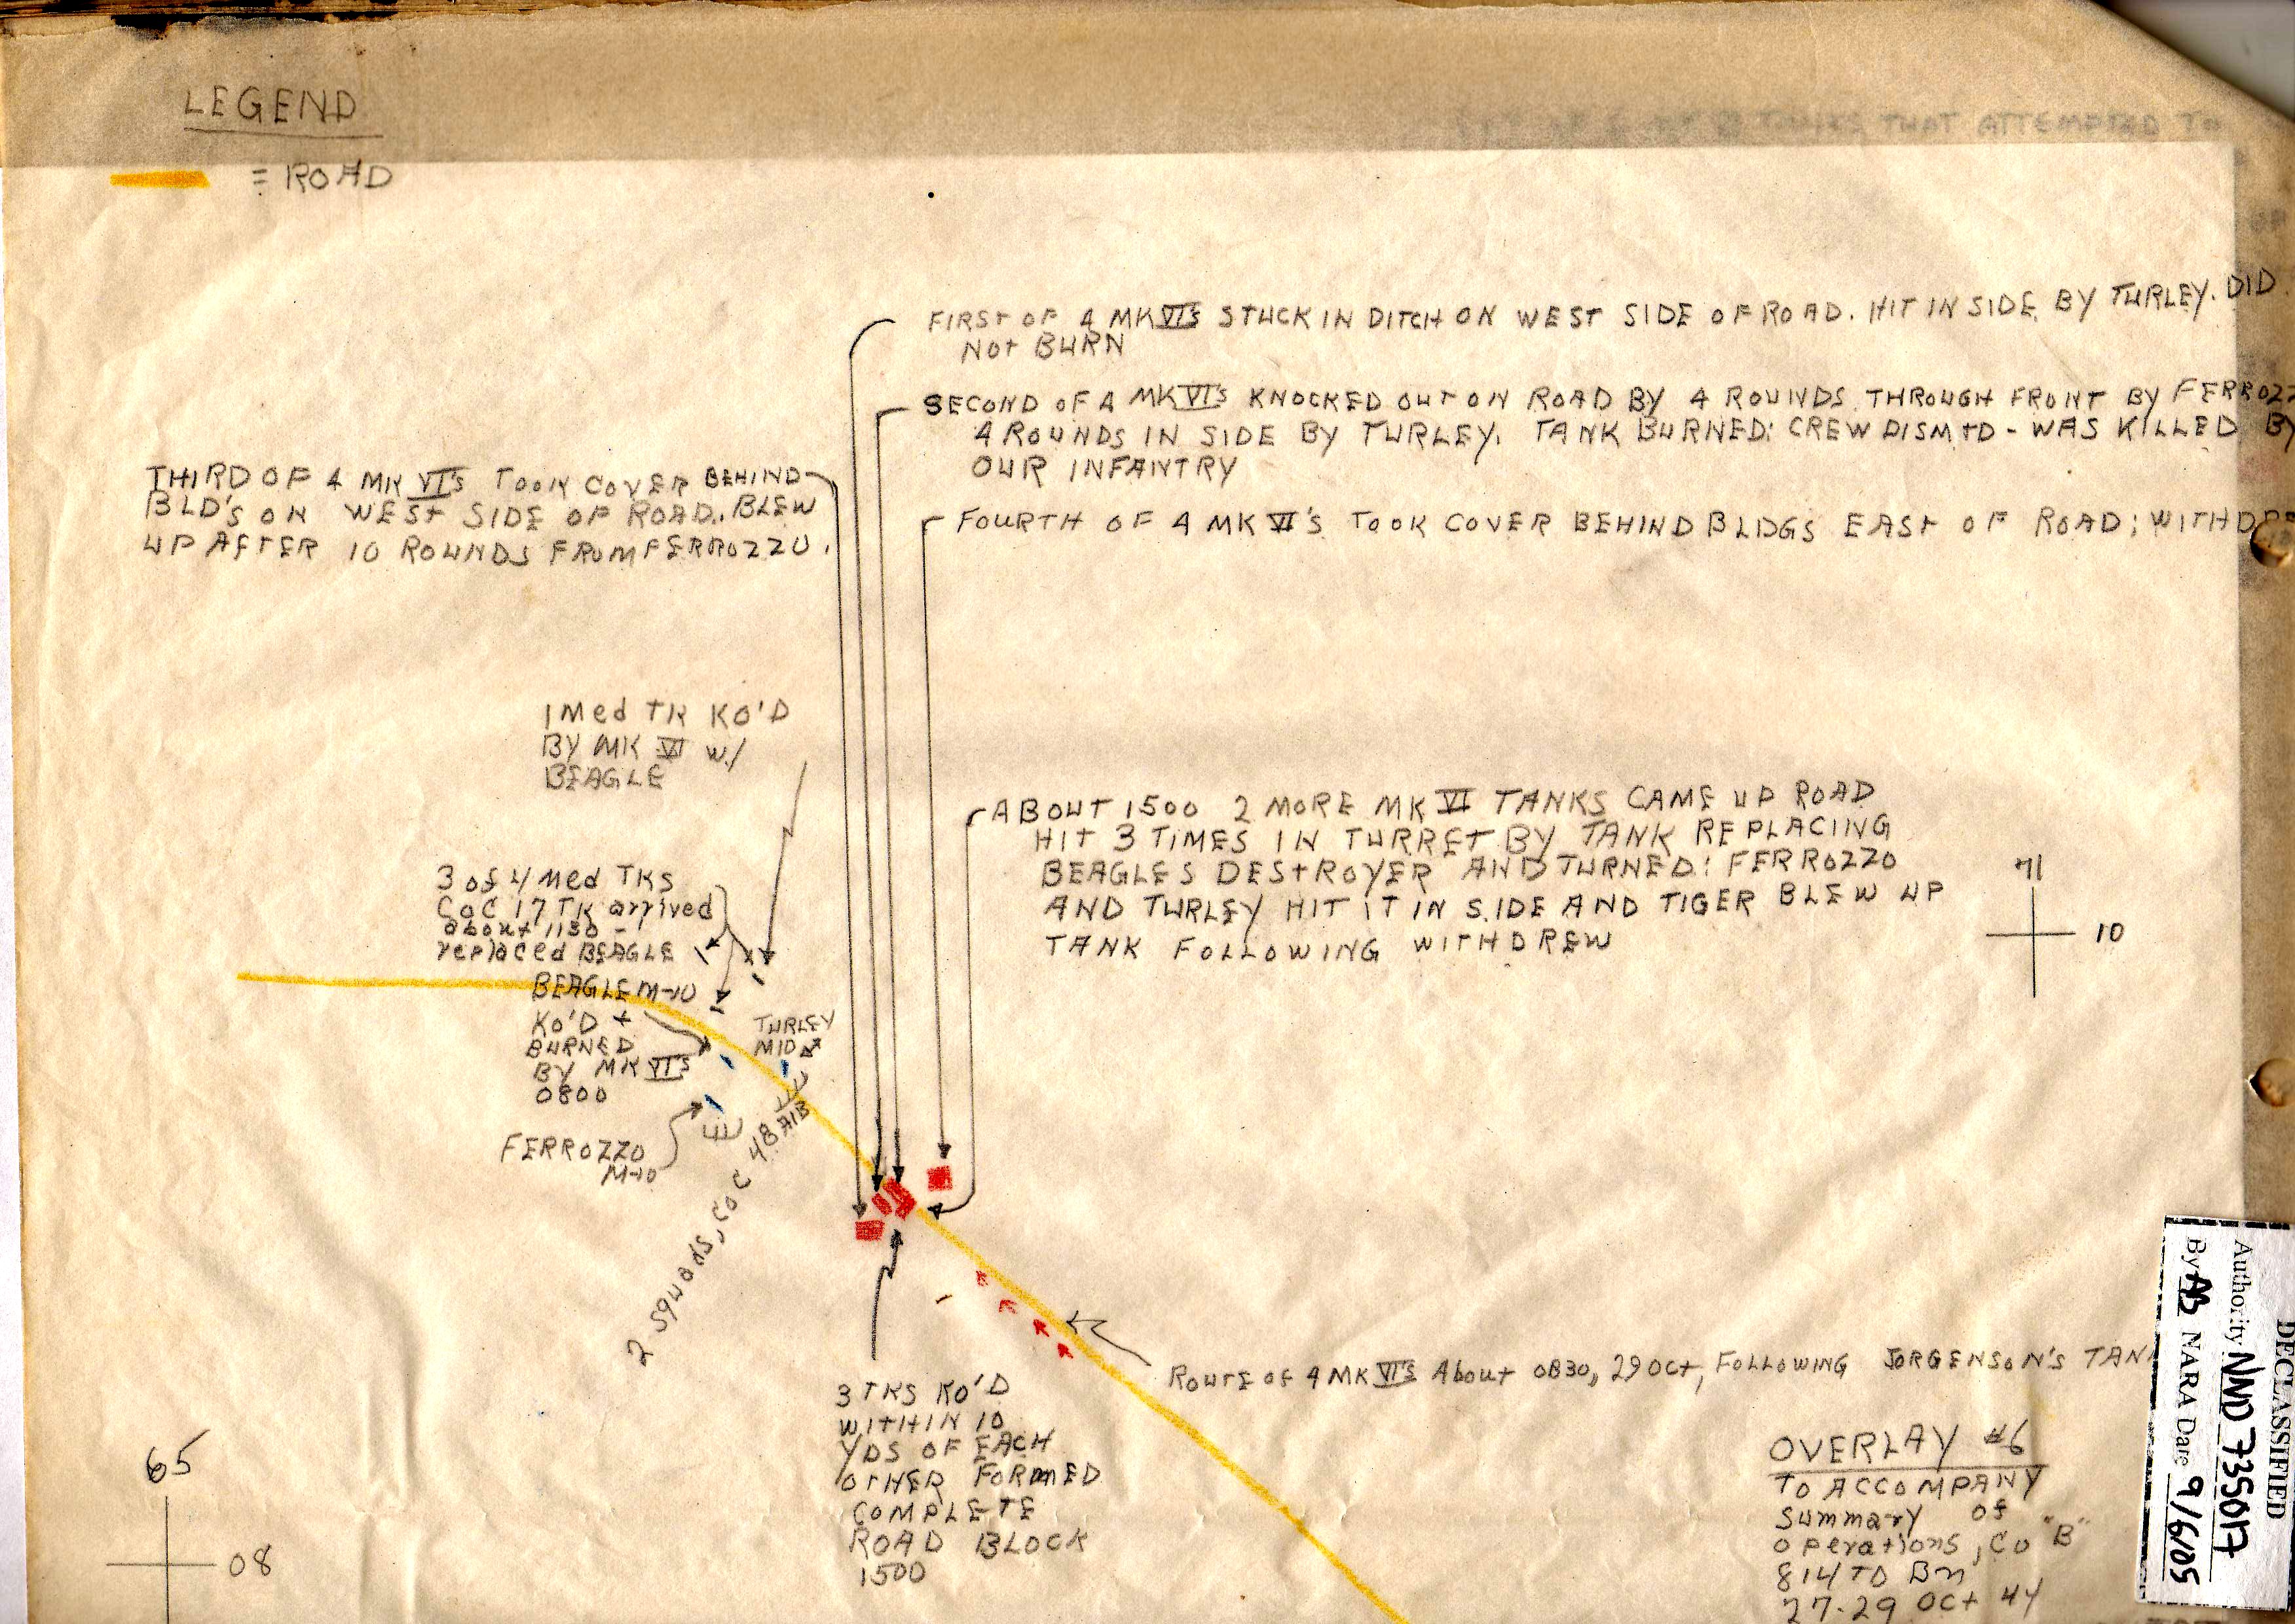 LEGEND
= ROAD
TANKS THAT ATTEMPTED TO
FIRST OF 4 MK VI's STUCK IN DITCH ON WEST SIDE OF ROAD. HIT IN SIDE BY TURLEY. DID
NOT BURN
SECOND OF 4 MK VI's KNOCKED OUT ON ROAD BY 4 ROUNDS THROUGH FRONT BY
4 ROUNDS IN SIDE BY TURLEY. TANK BURNED: CREW DISMTD - WAS KILLED BY
OUR INFANTRY
THIRD OF 4 MK VI's TOOK COVER BEHIND
BLD'S ON WEST SIDE OF ROAD. BLEW
UP AFTER 10 ROUNDS FROM FERROZZO.
FOURTH OF 4 MK VI'S TOOK COVER BEHIND BLDGS EAST OF ROAD;
1 Med TK KO'D
BY MK VI w/
BEAGLE
ABOUT 1500 2 MORE MK VI TANKS CAME UP ROAD
HIT 3 TIMES IN TURRET BY TANK REPLACING
BEAGLES DESTROYER AND TURNED: FERROZZO
AND TURLEY HIT IT IN SIDE AND TIGER BLEW UP
TANK FOLLOWING WITHDREW
71
10
3 of 4 Med TKS
Co C 17 TK arrived
about 1130 -
replaced BEAGLE
BEAGLE M-10
KO'D +
BURNED
BY MK VI's
0800
TURLEY
M10
FERROZZO
M-10
2 squads, Co C 48 AIB
Route of 4 MK VI's About 0830, 29 Oct, FOLLOWING JORGENSON'S
3 TKS KO'D
WITHIN 10
YDS OF EACH
OTHER FORMED
COMPLETE
ROAD BLOCK
1500
65
08
OVERLAY #6
TO ACCOMPANY
Summary of
operations, Co "B"
814 TD Bn
27-29 Oct 44
DECLASSIFIED
Authority NND 735017
By AB NARA Date 9/6/05